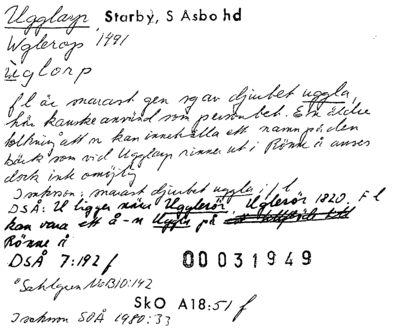 Ugglarp, Starby, S Åsbo hd
Uglerop 1491
ùglorp
f l är snarast gen sg av djurbet uggla,
här kanske använd som personbet. En äldre
tolkning att n kan innehålla ett namn på den
bäck som vid Ugglarp rinner ut i Rönne å anses
dock inte omöjlig
Isaksson: snarast djurbet uggla i f l
DSÅ: U ligger nära Ugglerör, Uglerör 1820. F l
kan vara ett å-n Uggla på
Rönne å
DSÅ 7:192 f 00031949
Sahlgren NoB 10:142
SkO A18:51 f
Isaksson SOÅ 1980:33